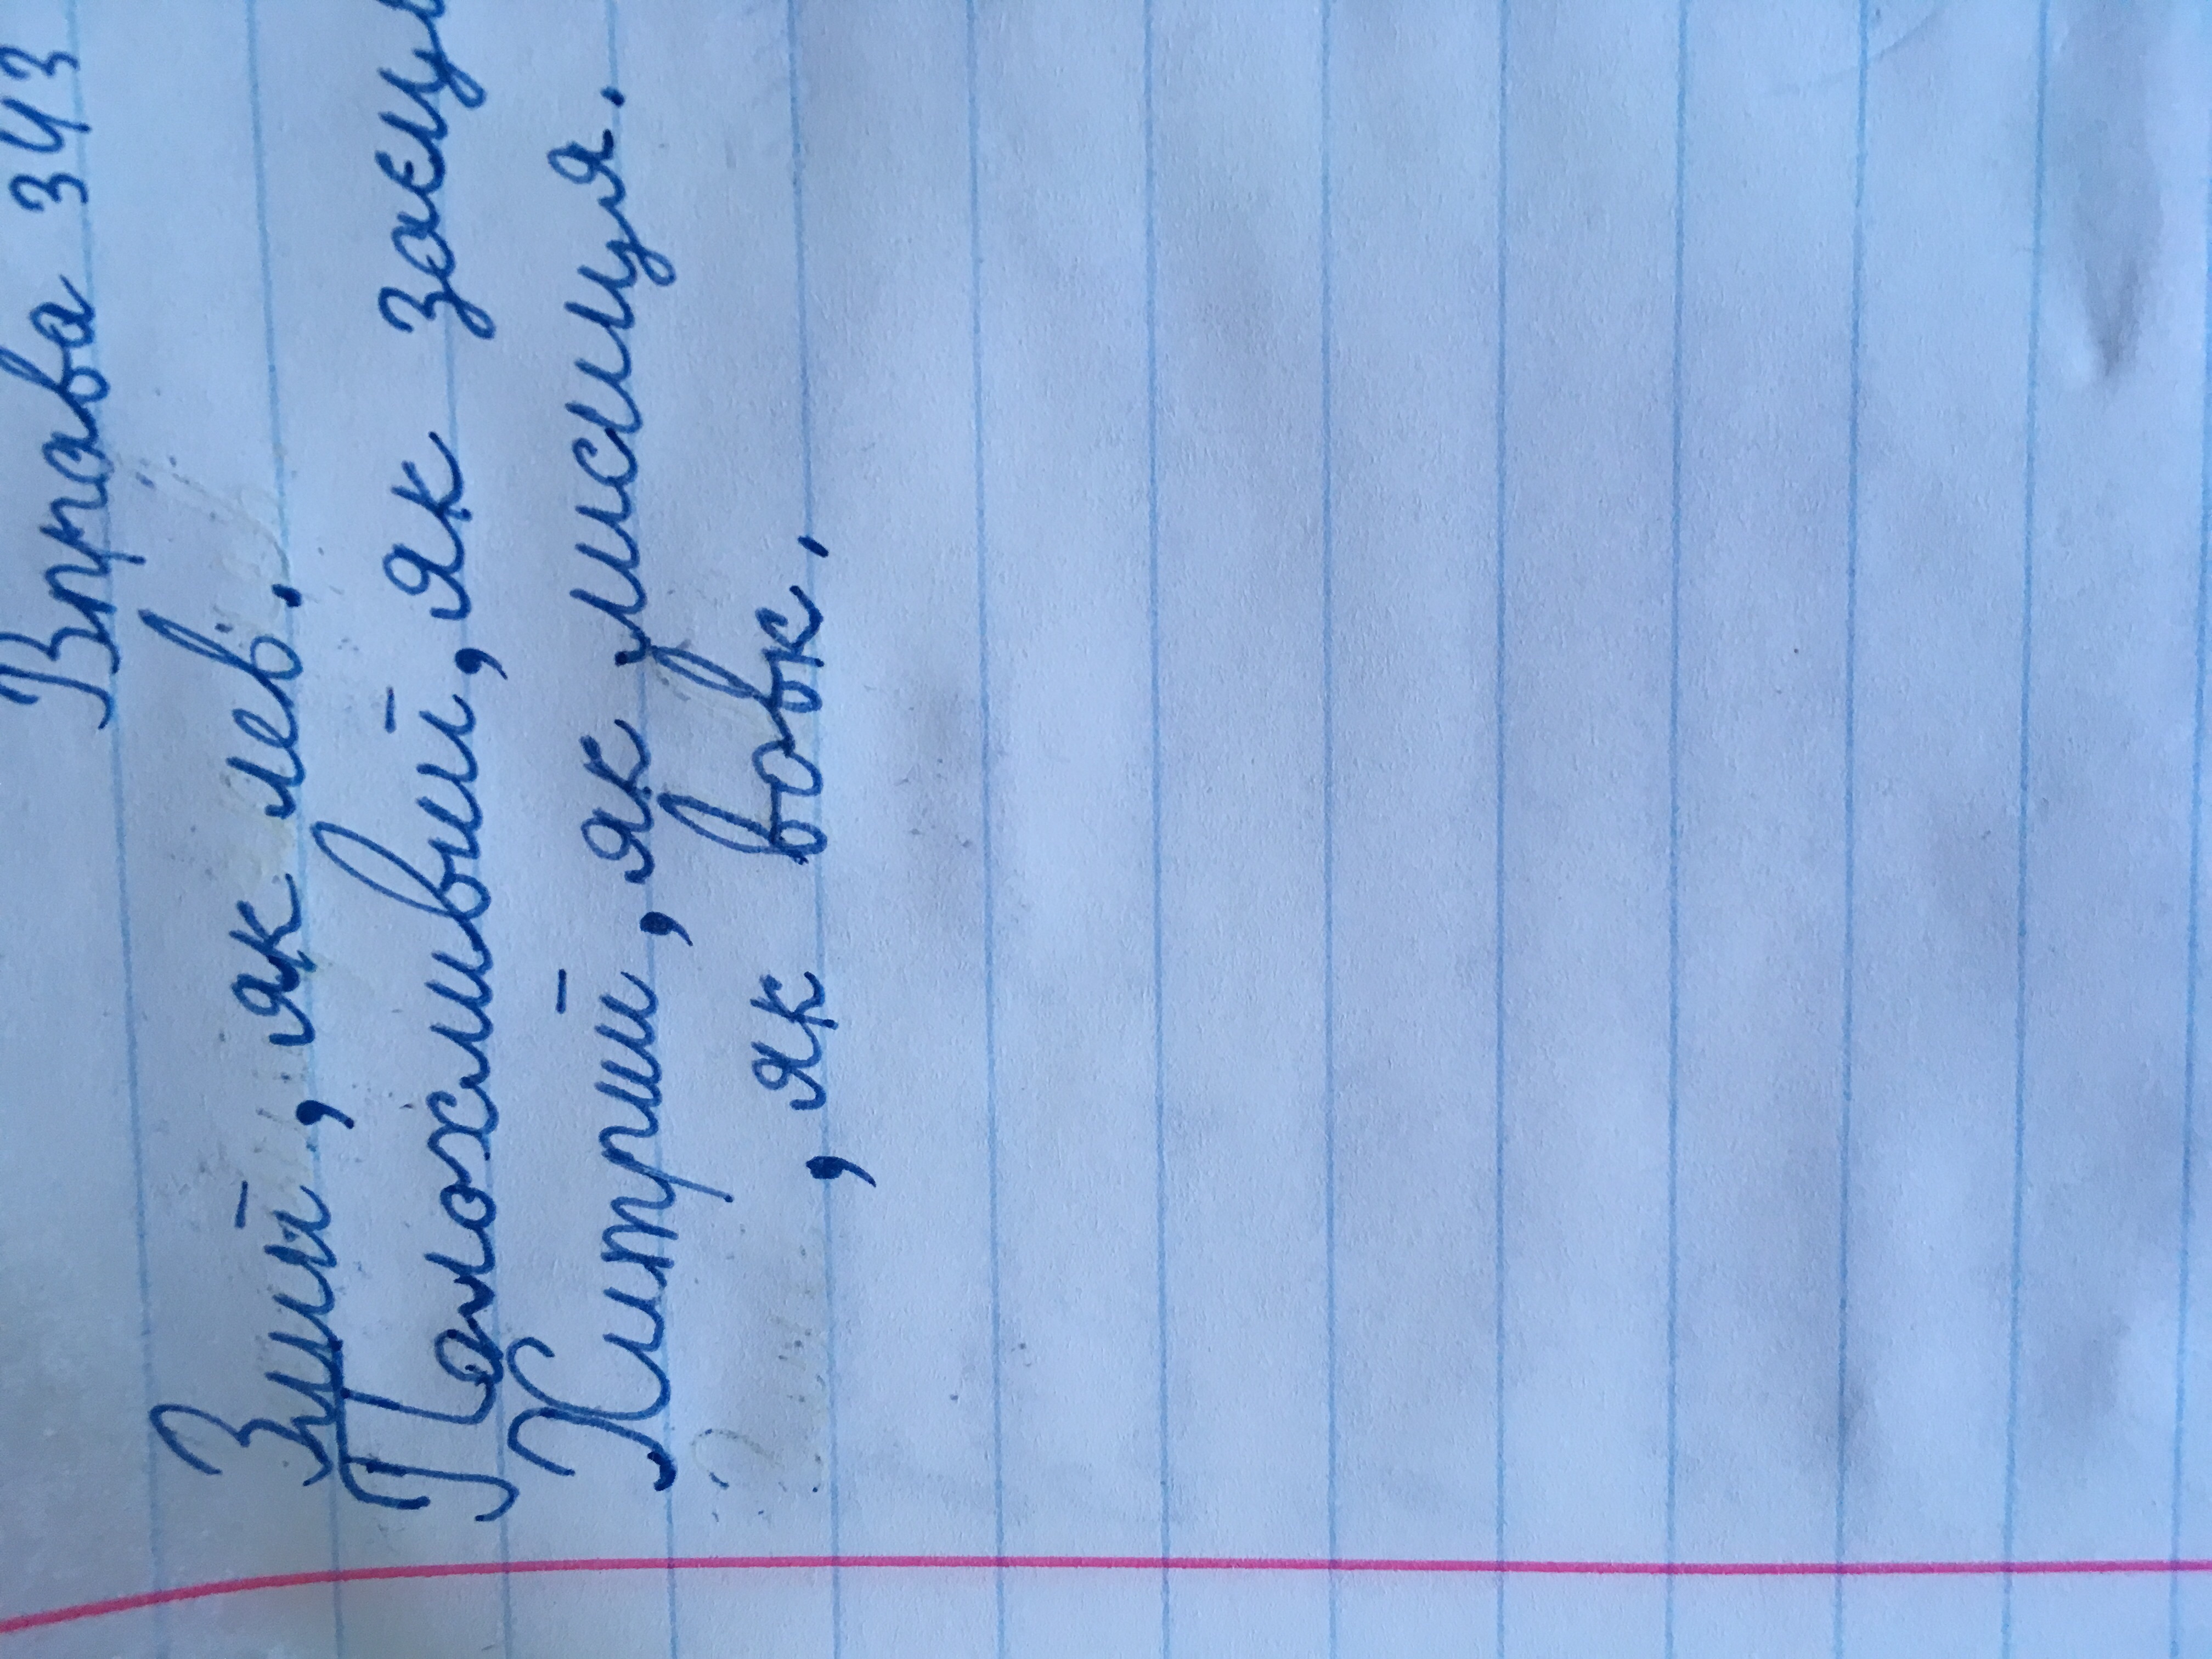 Вправа 343
Злий, як лев.
Полохливий, як заєць
Хитрий, як лисиця.
, як вовк.